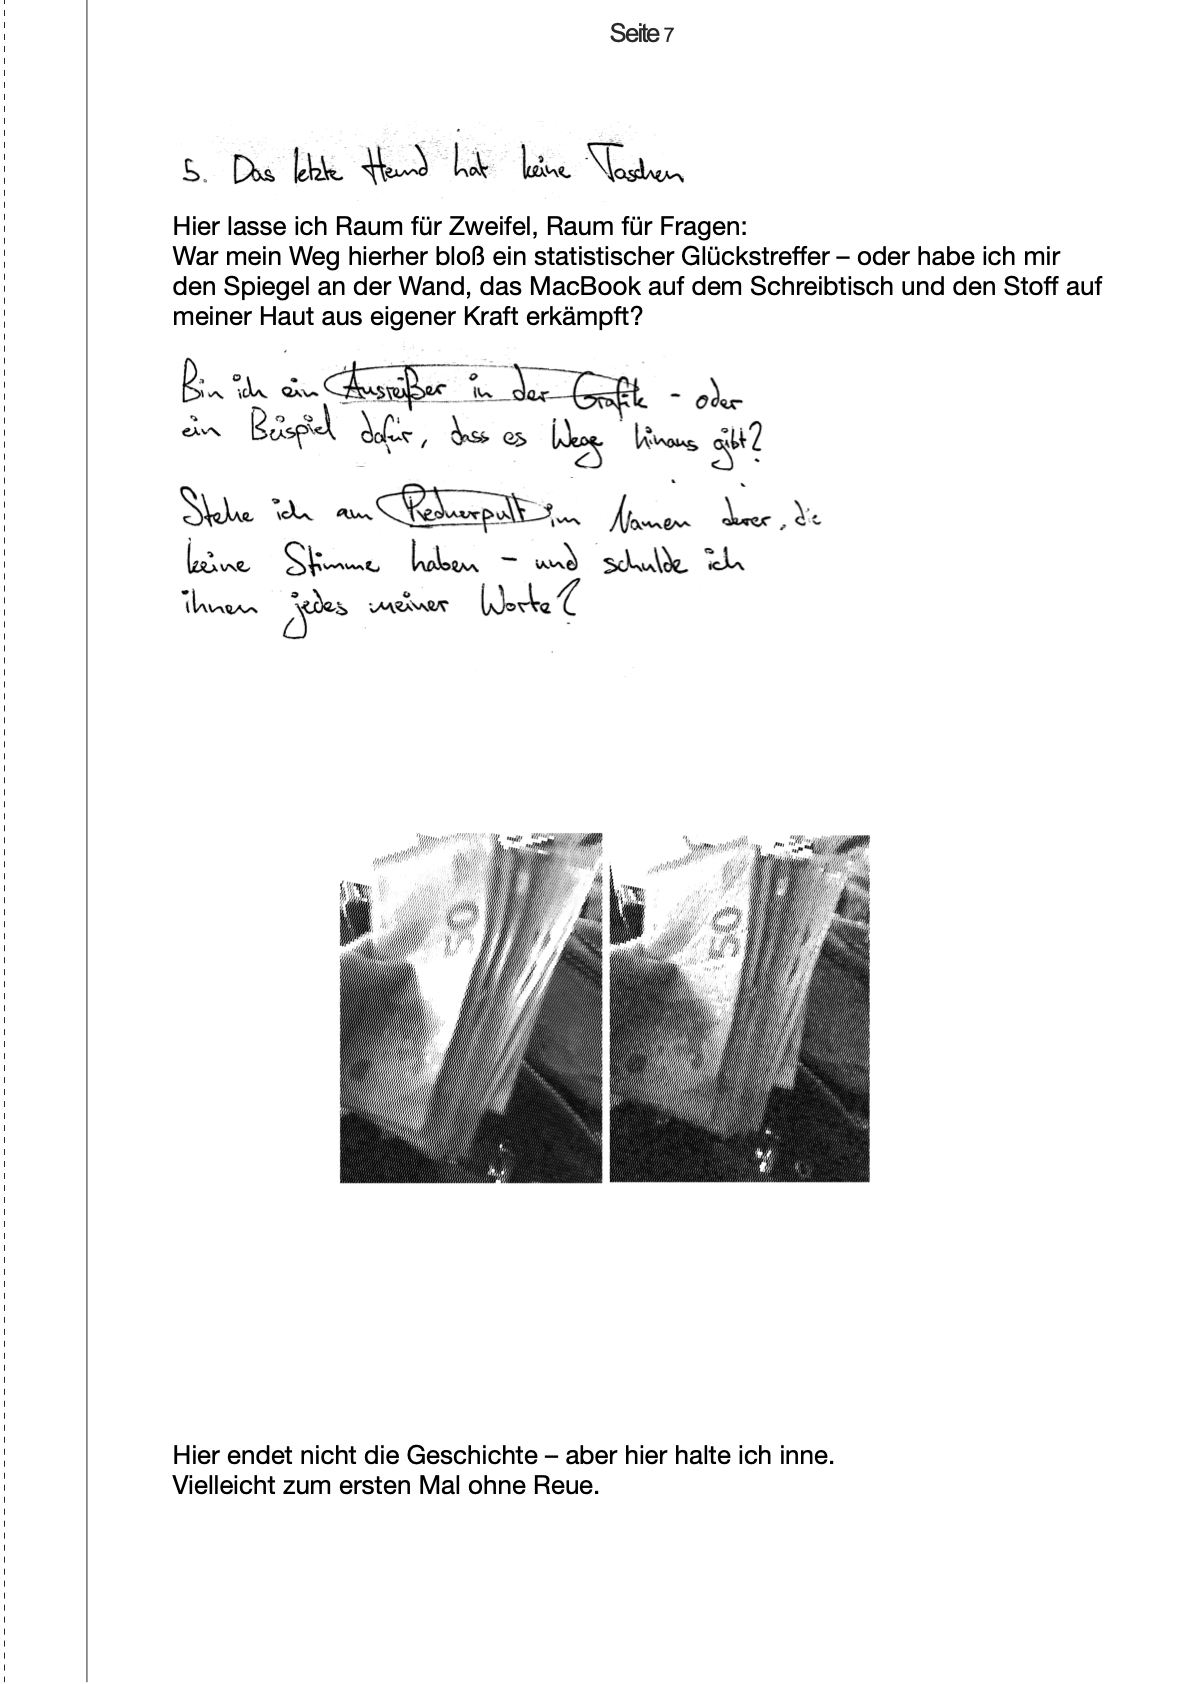 Seite 7
5. Das letzte Hemd hat keine Taschen
Hier lasse ich Raum für Zweifel, Raum für Fragen:
War mein Weg hierher bloß ein statistischer Glückstreffer – oder habe ich mir
den Spiegel an der Wand, das MacBook auf dem Schreibtisch und den Stoff auf
meiner Haut aus eigener Kraft erkämpft?
Bin ich ein Ausreißer in der Grafik - oder
ein Beispiel dafür, dass es Wege hinaus gibt?
Stehe ich am Rednerpult im Namen derer, die
keine Stimme haben - und schulde ich
ihnen jedes meiner Worte?
50
50
Hier endet nicht die Geschichte – aber hier halte ich inne.
Vielleicht zum ersten Mal ohne Reue.